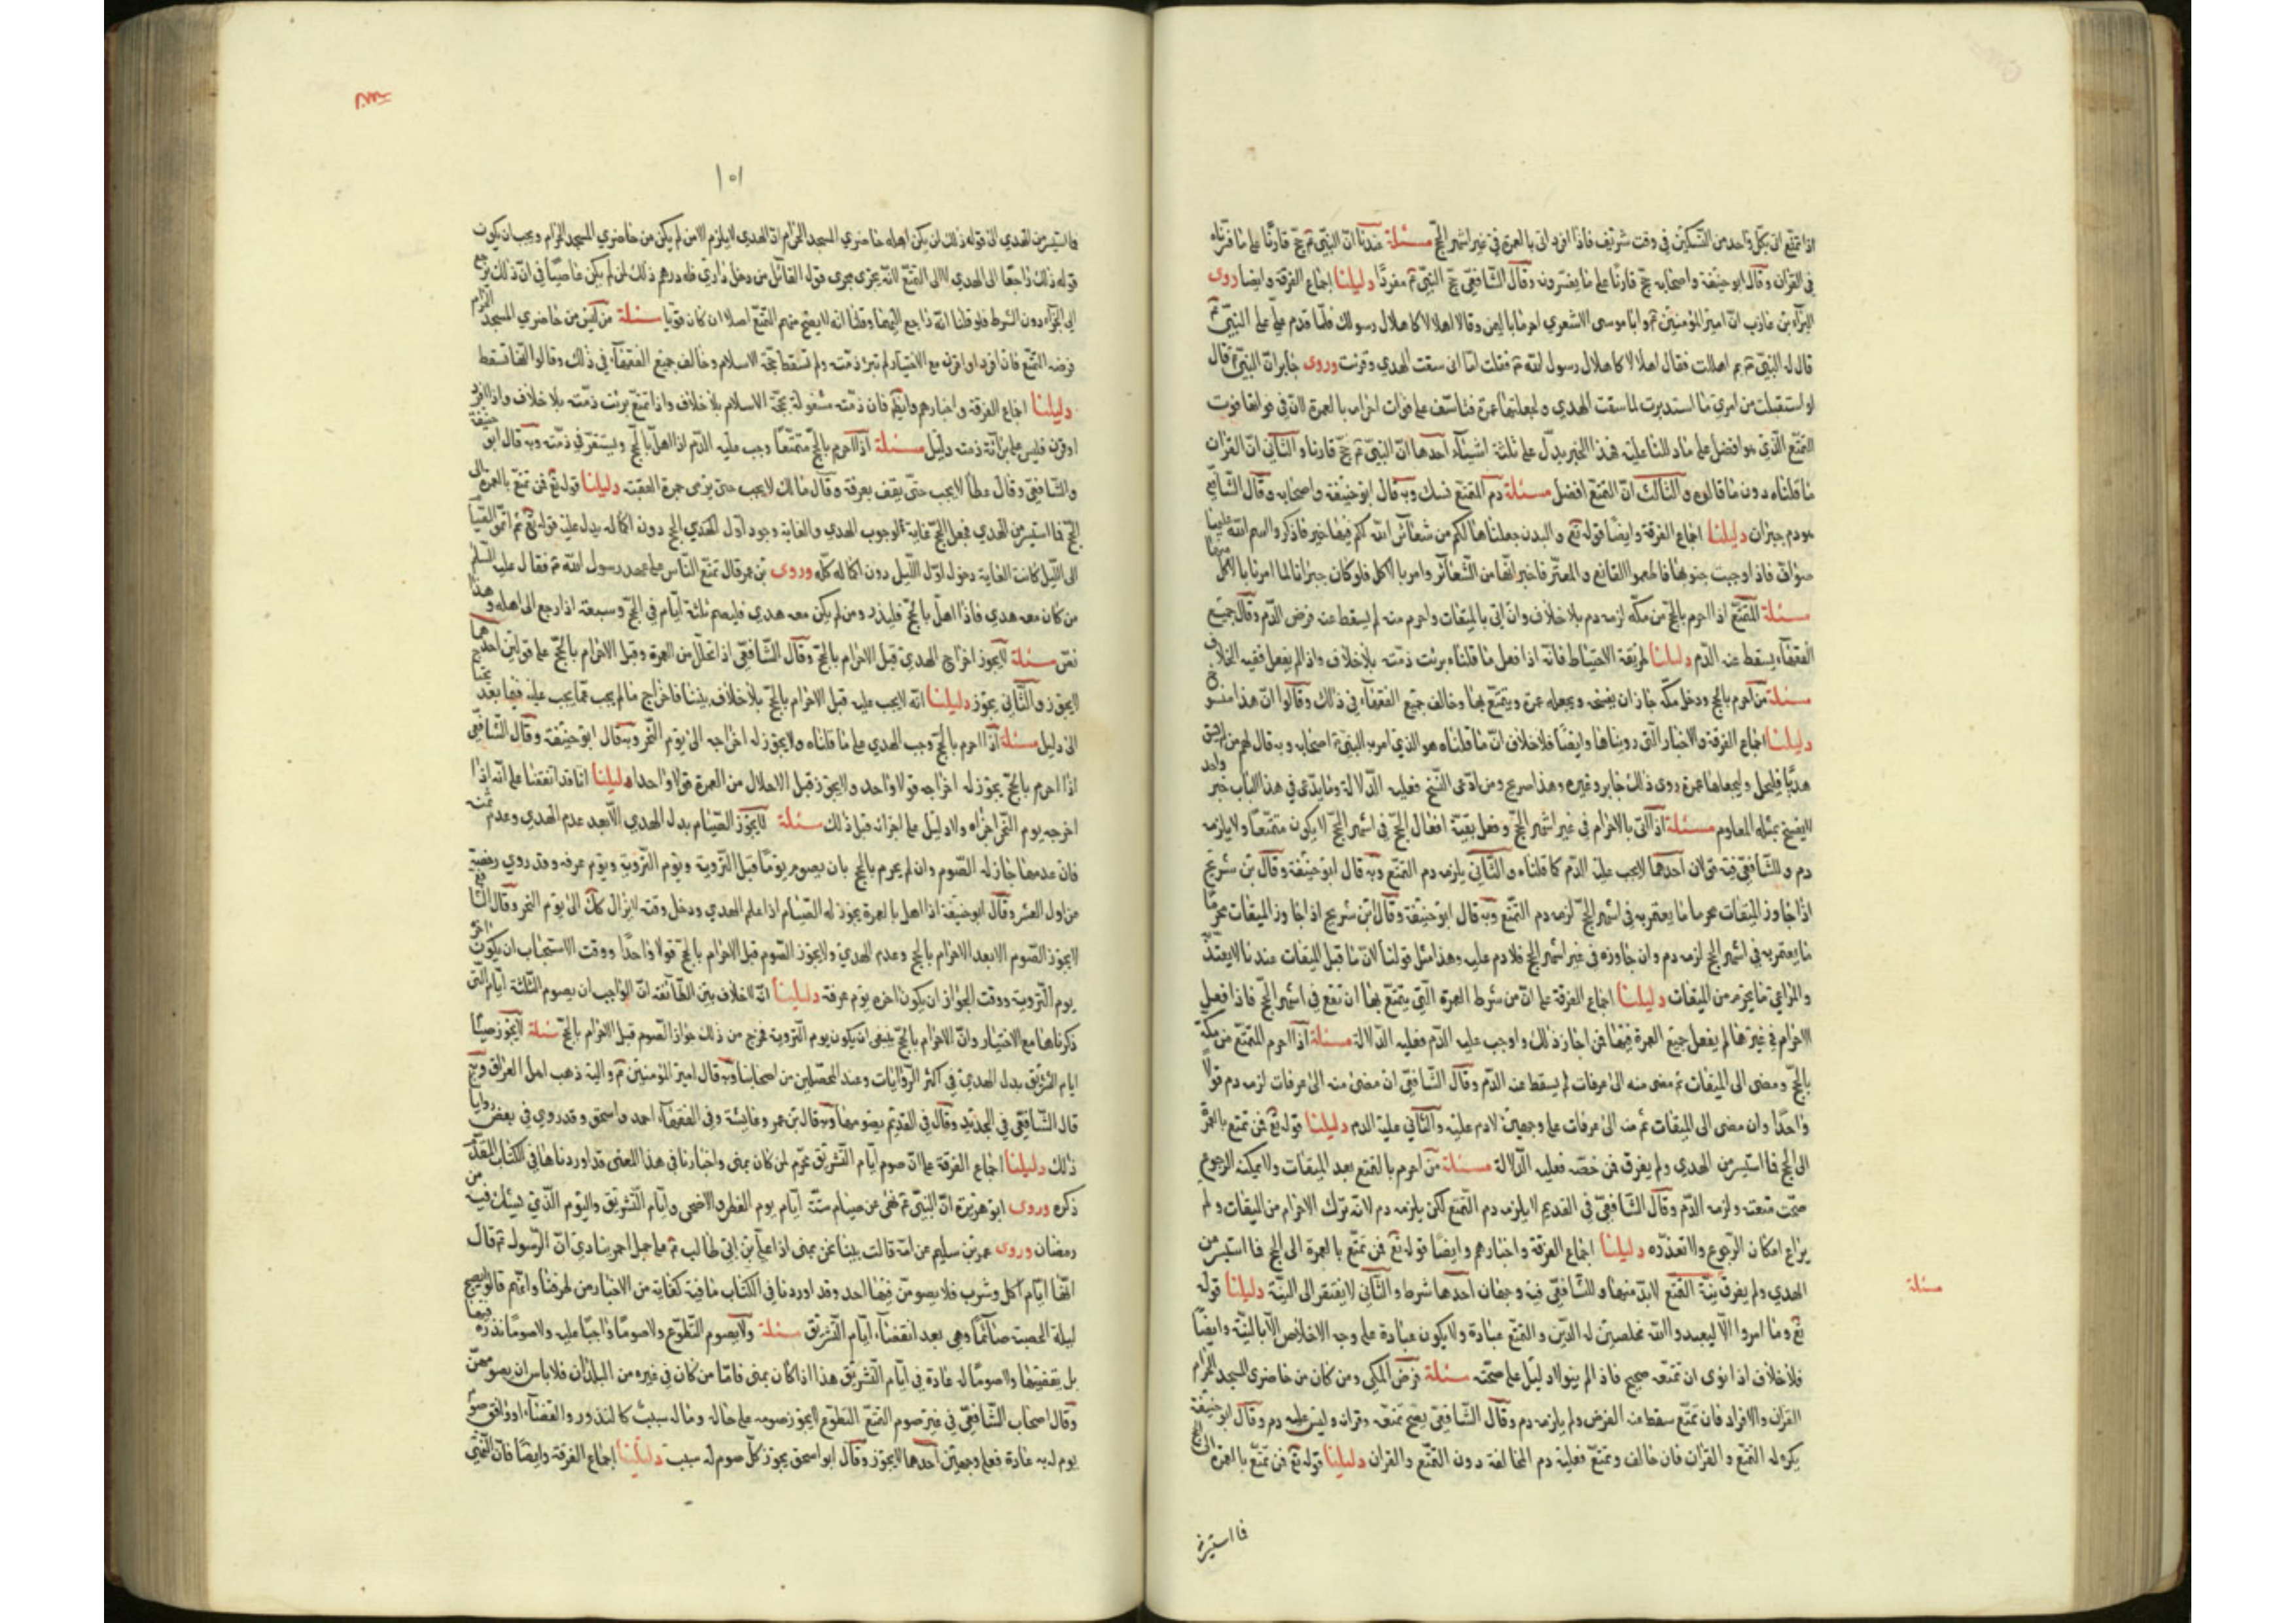 اذا تمتع اتى بكل واحد من النسكين في وقت شريف فاذا افرد اتى بالعمرة في غير اشهر الحج مسئلة عندنا ان النبي ص حج قارنا على ما فسرناه
في القران وقال ابو حنيفة واصحابه حج قارنا على ما يفسرونه وقال الشافعي حج النبي ص مفردا دليلنا اجماع الفرقة وايضا روى
البراء بن عازب ان امير المؤمنين ع وابا موسى الاشعري احرما باليمن وقالا اهلالا كاهلال رسولك فلما قدم علي على النبي ص
قال له النبي ص بم اهللت فقال اهلالا كاهلال رسول الله ص فقلت اما اني سقت الهدي وقرنت وروى جابر ان النبي ص قال
لو استقبلت من امري ما استدبرت لما سقت الهدي ولجعلتها عمرة فتاسف على فوات احرامه بالعمرة لان في فواتها فوت
التمتع الذي هو افضل على ما دللنا عليه فهذا الخبر يدل على ثلثة اشياء احدها ان النبي ص حج قارنا والثاني ان القران
ما قلناه دون ما قالوه والثالث ان التمتع افضل مسئلة دم التمتع نسك وبه قال ابو حنيفة واصحابه وقال الشافعي
هو دم جبران دليلنا اجماع الفرقة وايضا قوله تع والبدن جعلناها لكم من شعائر الله لكم فيها خير فاذكروا اسم الله عليها
صواف فاذا وجبت جنوبها فاطعموا القانع والمعتر فاخبر انها من الشعائر وامر بالاكل فلو كان جبرانا لما امرنا بالاكل منها
مسئلة المتمتع اذا احرم بالحج من مكة لزمه دم بلا خلاف وان اتى بالميقات واحرم منه لم يسقط عنه فرض الدم وقال جميع
الفقهاء يسقط عنه الدم دليلنا طريقة الاحتياط فانه اذا فعل ما قلناه برئت ذمته بلا خلاف واذا لم يفعل ففيه الخلاف
مسئلة من احرم بالحج ودخل مكة جاز ان يفسخه ويجعله عمرة ويتمتع بها وخالف جميع الفقهاء في ذلك وقالوا ان هذا منسوخ
دليلنا اجماع الفرقة والاخبار التي رويناها وايضا فلا خلاف ان ما قلناه هو الذي امر به النبي ص اصحابه وبه قال لهم من لم يسق
هديا فليحل وليجعلها عمرة روى ذلك جابر وغيره وهذا صريح ومن ادعى النسخ فعليه الدلالة وما يدعى في هذا الباب خبر واحد
لا ينسخ بمثله المعلوم مسئلة اذا اتى بالاحرام في غير اشهر الحج وفعل بقية افعال الحج في اشهر الحج لا يكون متمتعا ولا يلزمه
دم وللشافعي فيه قولان احدهما لا يجب عليه الدم كما قلناه والثاني يلزمه دم التمتع وبه قال ابو حنيفة وقال بن شريح
اذا جاوز الميقات محرما ما يعتمر به في اشهر الحج لزمه دم التمتع وبه قال ابو حنيفة وقال ابن سريج اذا جاوز الميقات محرما
ما يعتمر به في اشهر الحج لزمه دم وان جاوزه في غير اشهر الحج فلا دم عليه وهذا مثل قولنا لان ما قبل الميقات عندنا لا يعتد به
والمراعي ما يحرم من الميقات دليلنا اجماع الفرقة على ان من شرط العمرة التي يتمتع بها ان تقع في اشهر الحج فاذا فعل
الاحرام في غيرها لم يفعل جميع العمرة فيها فمن اجاز ذلك واوجب عليه الدم فعليه الدلالة مسئلة اذا احرم المتمتع من مكة
بالحج ومضى الى الميقات ثم مضى منه الى عرفات لم يسقط عنه الدم وقال الشافعي ان مضى منه الى عرفات لزمه دم قولا
واحدا وان مضى الى الميقات ثم منه الى عرفات على وجهين لا دم عليه والثاني عليه الدم دليلنا قوله تع فمن تمتع بالعمرة
الى الحج فما استيسر من الهدي ولم يفرق فمن خصه فعليه الدلالة مسئلة من احرم بالتمتع بعد الميقات ولا يمكنه الرجوع
صحت متعته ولزمه الدم وقال الشافعي في القديم لا يلزمه دم التمتع لكن يلزمه دم لانه ترك الاحرام من الميقات ولم
يراع امكان الرجوع ولا تعذره دليلنا اجماع الفرقة واخبارهم وايضا قوله تع فمن تمتع بالعمرة الى الحج فما استيسر من
الهدي ولم يفرق نية التمتع لابد منها وللشافعي فيه وجهان احدهما شرط والثاني لا يفتقر الى النية دليلنا قوله
مسئلة
تع وما امروا الا ليعبدوا الله مخلصين له الدين والتمتع عبادة ولا يكون عبادة على وجه الاخلاص الا بالنية وايضا
فلا خلاف اذا نوى ان تمتعه صحيح فاذا لم ينو لا دليل على صحته مسئلة فرض المكي ومن كان من حاضري المسجد الحرام
القران والافراد فان تمتع سقط عنه الفرض ولم يلزمه دم وقال الشافعي يصح تمتعه وقرانه وليس عليه دم وقال ابو حنيفة
يكره له التمتع والقران فان خالف وتمتع فعليه دم المخالفة دون التمتع والقران دليلنا قوله تع فمن تمتع بالعمرة الى الحج
فما استيسر
١٥١
فما استيسر من الهدي الى قوله ذلك لمن لم يكن اهله حاضري المسجد الحرام ان الهدي لا يلزم الا من لم يكن من حاضري المسجد الحرام ويجب ان يكون
قوله ذلك راجعا الى الهدي لا الى التمتع لانه يجري مجرى قول القائل من دخل داري فله درهم ذلك لمن لم يكن عاصيا في ان ذلك يرجع
الى الجزاء دون الشرط فلو قلنا انه راجع اليهما وقلنا انه لا يصح منهم التمتع اصلا لكان قويا مسئلة من ليس من حاضري المسجد الحرام
فرضه التمتع فان افرد او قرن مع الاختيار لم تبرء ذمته ولم تسقط حجة الاسلام وخالف جميع الفقهاء في ذلك وقالوا انها تسقط
دليلنا اجماع الفرقة واخبارهم وايضا فان ذمته مشغولة بحجة الاسلام بلا خلاف واذا تمتع برئت ذمته بلا خلاف واذا افرد
او قرن فليس على براءة ذمته دليل مسئلة اذا احرم بالحج متمتعا وجب عليه الدم اذا اهل بالحج ويستقر في ذمته وبه قال ابو حنيفة
والشافعي وقال عطا لا يجب حتى يقف بعرفة وقال مالك لا يجب حتى يرمي جمرة العقبة دليلنا قوله تع فمن تمتع بالعمرة الى
الحج فما استيسر من الهدي فجعل الحج غاية لوجوب الهدي والغاية وجود اول الحج دون اكماله يدل عليه قوله تع ثم اتموا الصيام
الى الليل كانت الغاية دخول اول الليل دون اكماله كله وروى بن عمر قال تمتع الناس على عهد رسول الله ص فقال عليه السلم
من كان معه هدي فاذا اهل بالحج فليهد ومن لم يكن معه هدي فليصم ثلثة ايام في الحج وسبعة اذا رجع الى اهله وهذا
نص مسئلة لا يجوز اخراج الهدي قبل الاحرام بالحج وقال الشافعي اذا تحلل من العمرة وقبل الاحرام بالحج على قولين احدهما
لا يجوز والثاني يجوز دليلنا انه لا يجب عليه قبل الاحرام بالحج بلا خلاف بيننا فاخراج ما لم يجب عما يجب عليه فيما بعد يحتاج
الى دليل مسئلة اذا احرم بالحج وجب الهدي على ما قلناه ولا يجوز له اخراجه الى يوم النحر وبه قال ابو حنيفة وقال الشافعي
اذا احرم بالحج يجوز له اخراجه قولا واحدا ولا يجوز قبل الاحلال من العمرة قولا واحدا دليلنا انا قد اتفقنا على انه اذا
اخرجه يوم النحر اجزاه ولا دليل على اجزائه قبل ذلك مسئلة لا يجوز الصيام بدل الهدي الا بعد عدم الهدي وعدم ثمنه
فان عدمهما جاز له الصوم وان لم يحرم بالحج بان يصوم يوما قبل التروية ويوم التروية ويوم عرفة وقد روي رخصة
من اول العشر وقال ابو حنيفة اذا اهل بالعمرة يجوز له الصيام اذا عدم الهدي ودخل وقته ولا يزال كك الى يوم النحر وقال الشافعي
لا يجوز الصوم الا بعد الاحرام بالحج وعدم الهدي ولا يجوز الصوم قبل الاحرام بالحج قولا واحدا ووقت الاستحباب ان يكون اخره
يوم التروية ووقت الجواز ان يكون اخره يوم عرفة دليلنا انه لا خلاف بين الطائفة ان الواجب ان يصوم الثلثة ايام التي
ذكرناها مع الاختيار وان الاحرام بالحج ينبغي ان يكون يوم التروية فخرج من ذلك جواز الصوم قبل الاحرام بالحج مسئلة لا يجوز صيام
ايام التشريق بدل الهدي في اكثر الروايات وعند المحصلين من اصحابنا وبه قال امير المؤمنين ع واليه ذهب اهل العراق وبه
قال الشافعي في الجديد وقال في القديم يصومها وبه قال بن عمر وعائشة وفي الفقهاء احمد واسحق وقد روي في بعض رواياتنا
ذلك دليلنا اجماع الفرقة على ان صوم ايام التشريق محرم لمن كان بمنى واخبارنا في هذا المعنى قد اوردناها في الكتاب المقدم
ذكره وروى ابو هريرة ان النبي ص نهى عن صيام ستة ايام يوم الفطر والاضحى وايام التشريق واليوم الذي يشك فيه من
رمضان وروى عمرو بن سليم عن امه قالت بينا نحن بمنى اذا علي بن ابي طالب ع على جمل احمر ينادي ان الرسول ص قال
انها ايام اكل وشرب فلا يصومن فيها احد وقد اوردنا في الكتاب ما فيه كفاية من الاخبار من طرقنا وانهم قالوا يصبح
ليلة الحصبة صائما وهي بعد انقضاء ايام التشريق مسئلة ولا يصوم التطوع ولا صوما واجبا عليه ولا صوما نذره فيها
بل يقضيها ولا صوما له عادة في ايام التشريق هذا اذا كان بمنى فاما من كان في غيره من البلدان فلا باس ان يصومهن
وقال اصحاب الشافعي في غير صوم التمتع التطوع لا يجوز صومه على حال وما له سبب كالنذور والقضاء او وافق صوم
يوم له به عادة فعلى وجهين احدهما لا يجوز وقال ابو اسحق يجوز كل صوم له سبب دليلنا اجماع الفرقة وايضا فان النهي